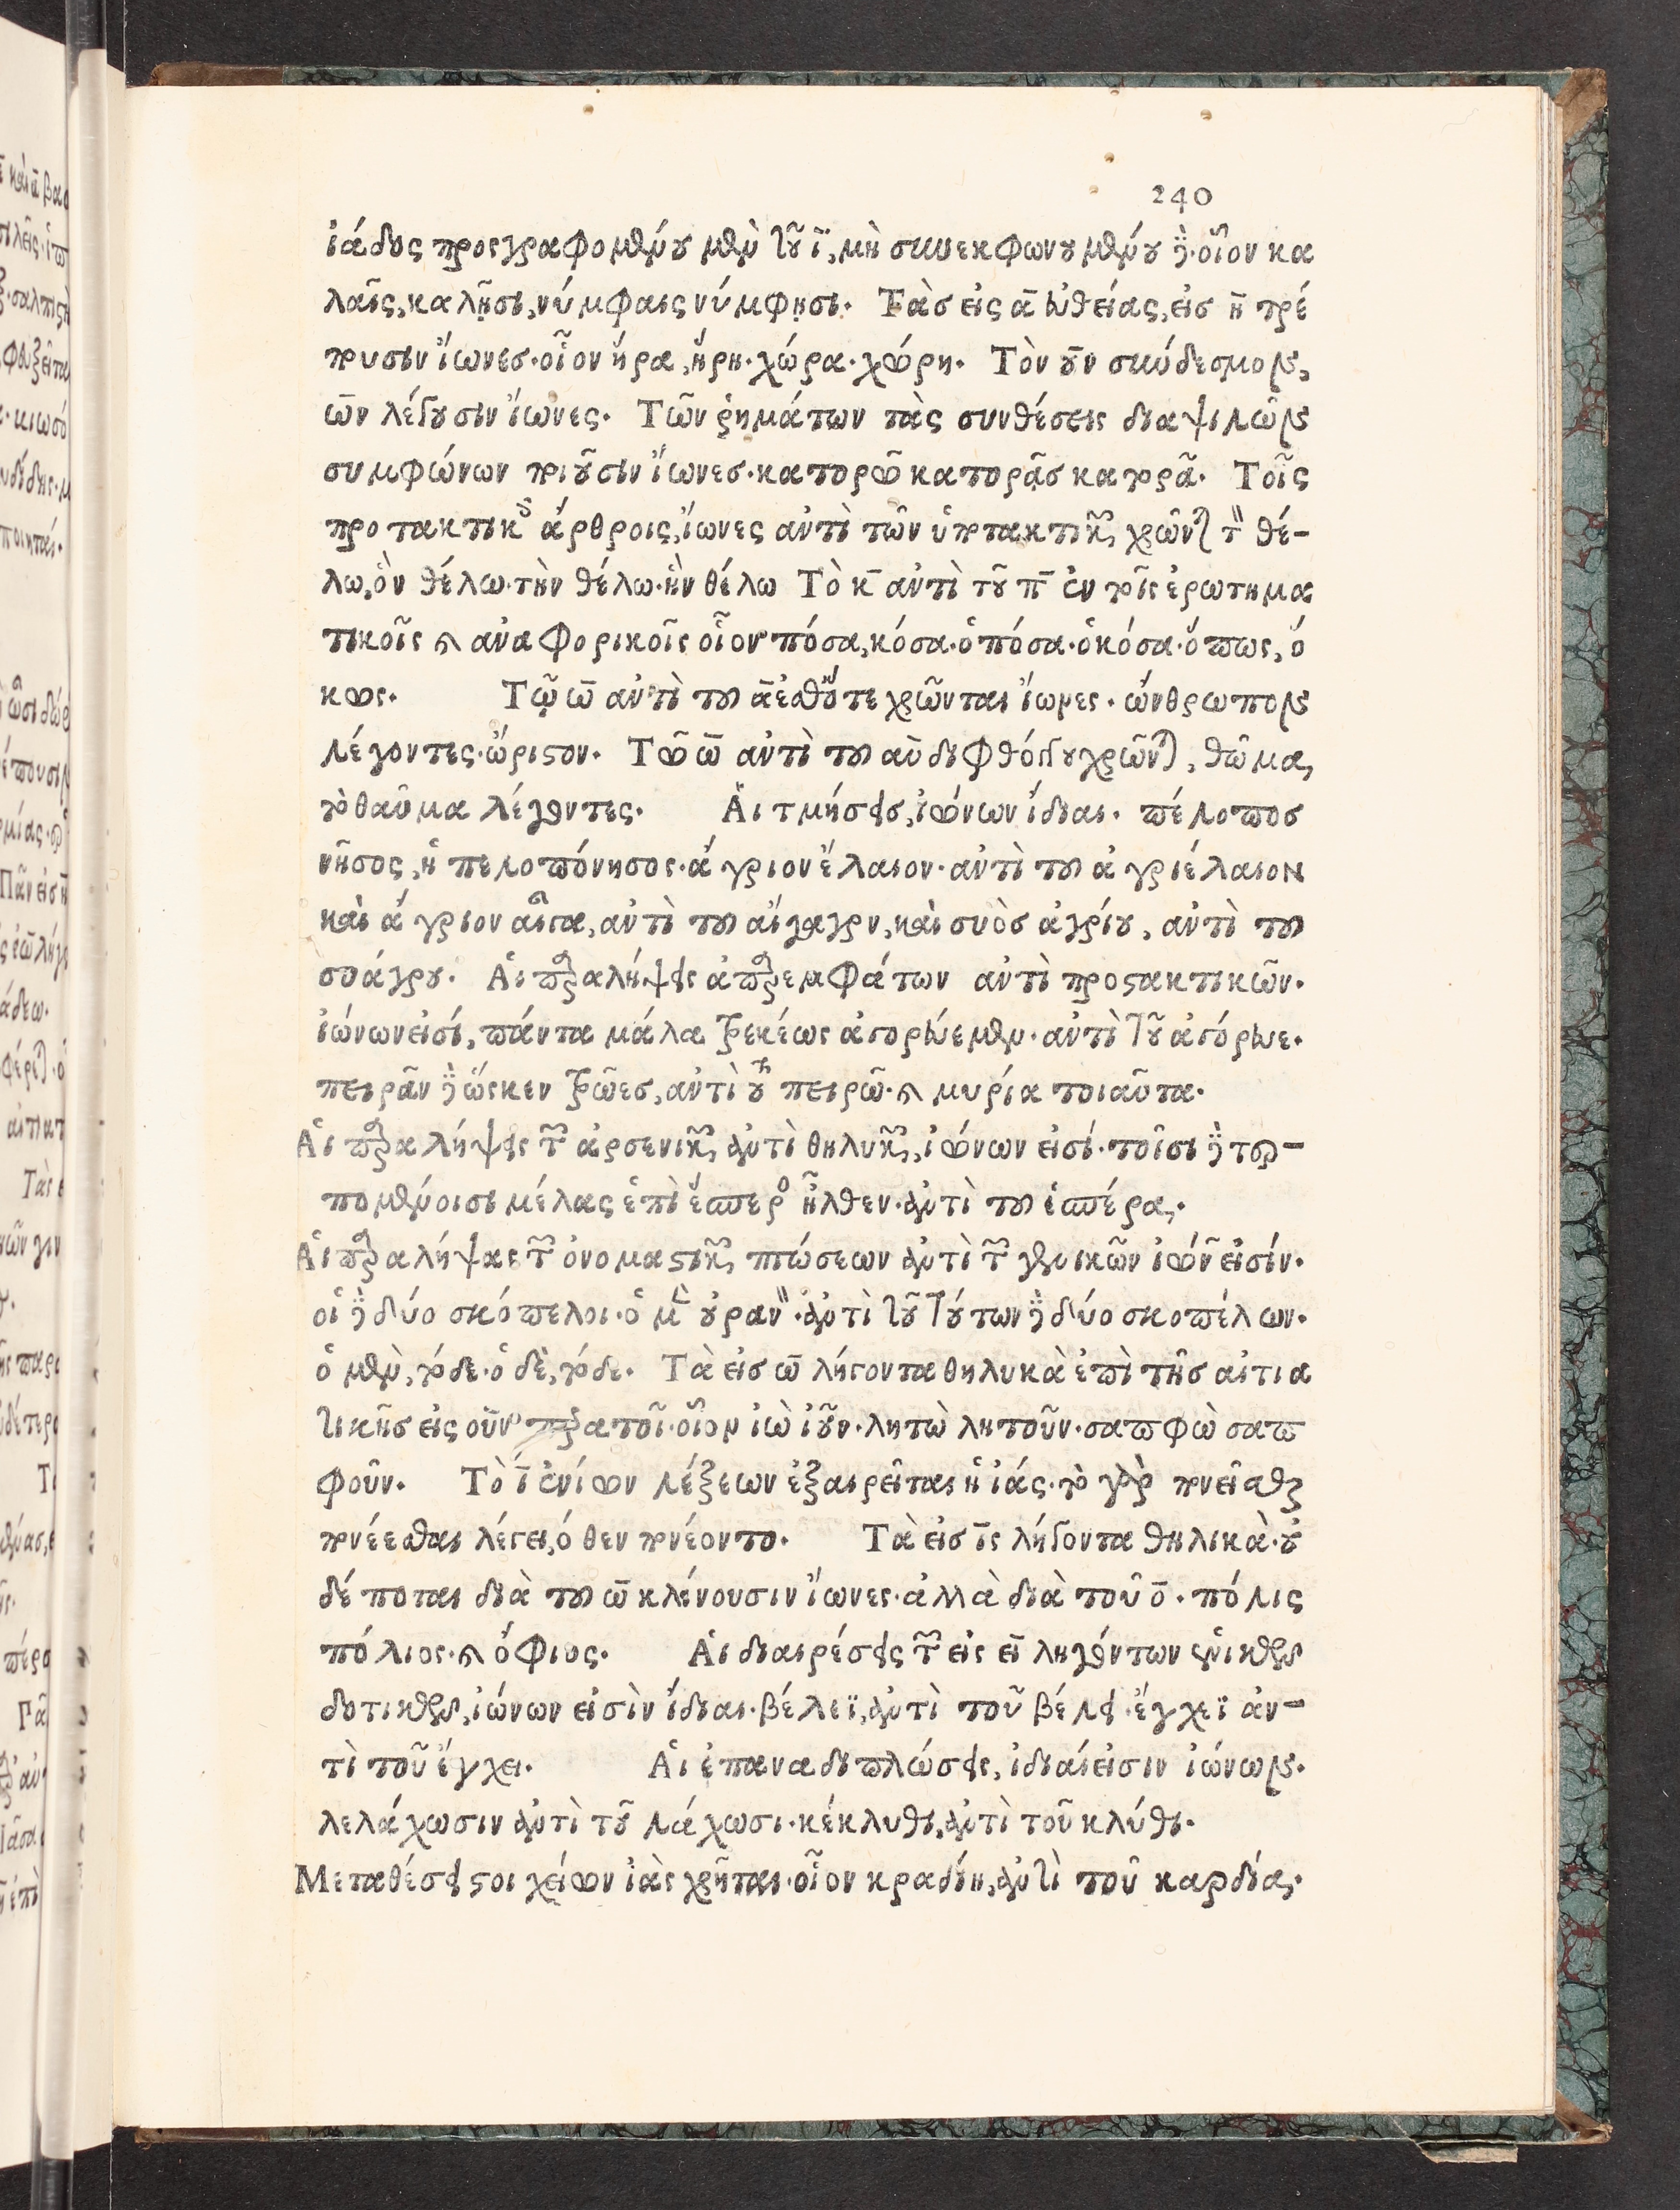 240
ἰάδος προςγραφομένου μὲν τοῦ ϊ, μὴ συνεκφωνουμένου δέ· οἷον κα
λαῖς, καλῇσι, νύμφαις νύμφῃσι. Τὰσ εἰς ᾱ εὐθείας, εἰσ η̄ τρέ
πουσιν ἴωνεσ· οἷον ἥρα, ἥρη· χώρα· χώρη. Τὸν οὖν σύνδεσμον,
ὦν λέγουσιν ἴωνες. Τῶν ῥημάτων τὰς συνθέσεις διαψιλῶν
συμφώνων ποιοῦσιν ἴωνεσ· κατορῶ κατορᾷσ κατορᾶ. Τοῖς
προτακτικοῖς ἄρθροις, ἴωνες αντὶ τῶν ὑποτακτικῶν χρῶνται τὸν θέ-
λω, ὃν θέλω· τὴν θέλω· ἣν θέλω Τὸ κ̄ αντὶ τοῦ π̄ ἐν τοῖς ἐρωτημα
τικοῖς καὶ αναφορικοῖς οἷον πόσα, κόσα· ὁπόσα· ὁκόσα· ὅπως, ὅ
κως. Τῷ ω̄ αντὶ του ᾱ ἐσθότε χρῶνται ἴωνες· ὤνθρωπον
λέγοντες· ὤριστον. Τῶ ω̄ αντὶ του αῡ διφθόγγου χρῶνται, θῶμα,
τὸ θαῦμα λέγοντες. Ἁι τμήσεις, ἰώνων ἴδιαι. πέλοποσ
νῆσος, ἡ πελοπόνησος· ἄγριον ἔλαιον· αντὶ του ἀγριέλαιον
καὶ ἄγριον αἶγα, αντὶ του αἴγαγρον, καὶ συὸσ ἀγρίου, αντὶ του
συάγρου. Ἁι παραλήψεις ἀπαρεμφάτων αντὶ προστακτικῶν.
ἰώνων εἰσί, πάντα μάλα τρεκέως ἀγορευέμεν· αντὶ τοῦ ἀγόρευε.
πειρᾶν δὲ ὥςκεν τρῶεσ, αντὶ τοῦ πειρῶ. καὶ μυρία τοιαῦτα.
Ἁι παραλήψεις τῶν ἀρσενικῶν αντὶ θηλυκῶν, ἰώνων εἰσί. τοῖσι δὲ τερ-
πομένοισι μέλας ἐπὶ ἕσπερος ἦλθεν· αντὶ του ἑσπέρα.
Ἁι παραλήψαις τῶν ὀνομαστικῶν πτώσεων αντὶ τῶν γενικῶν ἰώνων εἰσίν.
οἱ δὲ δύο σκόπελοι· ὁ μὲν οὐρανὸν· αντὶ τοῦ τούτων δὲ δύο σκοπέλων.
ὁ μὲν, τόδε· ὁ δὲ, τόδε. Τὰ εἰσ ω̄ λήγοντα θηλυκὰ ἐπὶ τῆσ αἰτια
τικῆσ εἰς οῦν παρατοῖ· οἷον ἰὼ ἰοῦν· λητὼ λητοῦν· σαπφὼ σαπ
φοῦν. Τὸ ῑ ἐνίων λέξεων ἐξαιρεῖται ἡ ἰάς· τὸ γὰρ πνεῖσθαι
πνέεσθαι λέγει, ὅθεν πνέοντο. Τὰ εἰσ ῑς λήγοντα θηλικὰ· οὐ
δέποται διὰ του ω̄ κλίνουσιν ἴωνες· ἀλλὰ διὰ τοῦ ο̄. πόλις
πόλιος· καὶ ὄφιος. Ἁι διαιρέσεις τῶν εἰς εῑ ληγόντων ἑνικῶν
δοτικῶν, ἰώνων εἰσὶν ἴδιαι· βέλεϊ, αντὶ τοῦ βέλει· ἔγχεϊ ἀν-
τὶ τοῦ ἔγχει. Ἁι ἐπαναδιπλώσεις, ἰδιαίεισιν ἰώνων.
λελάχωσιν αντὶ τοῦ λάχωσι. κέκλυθι, αντὶ τοῦ κλύθι.
Μεταθέσει στοιχείων ἰὰς χρῆται· οἷον κραδίη, αντὶ τοῦ καρδία.